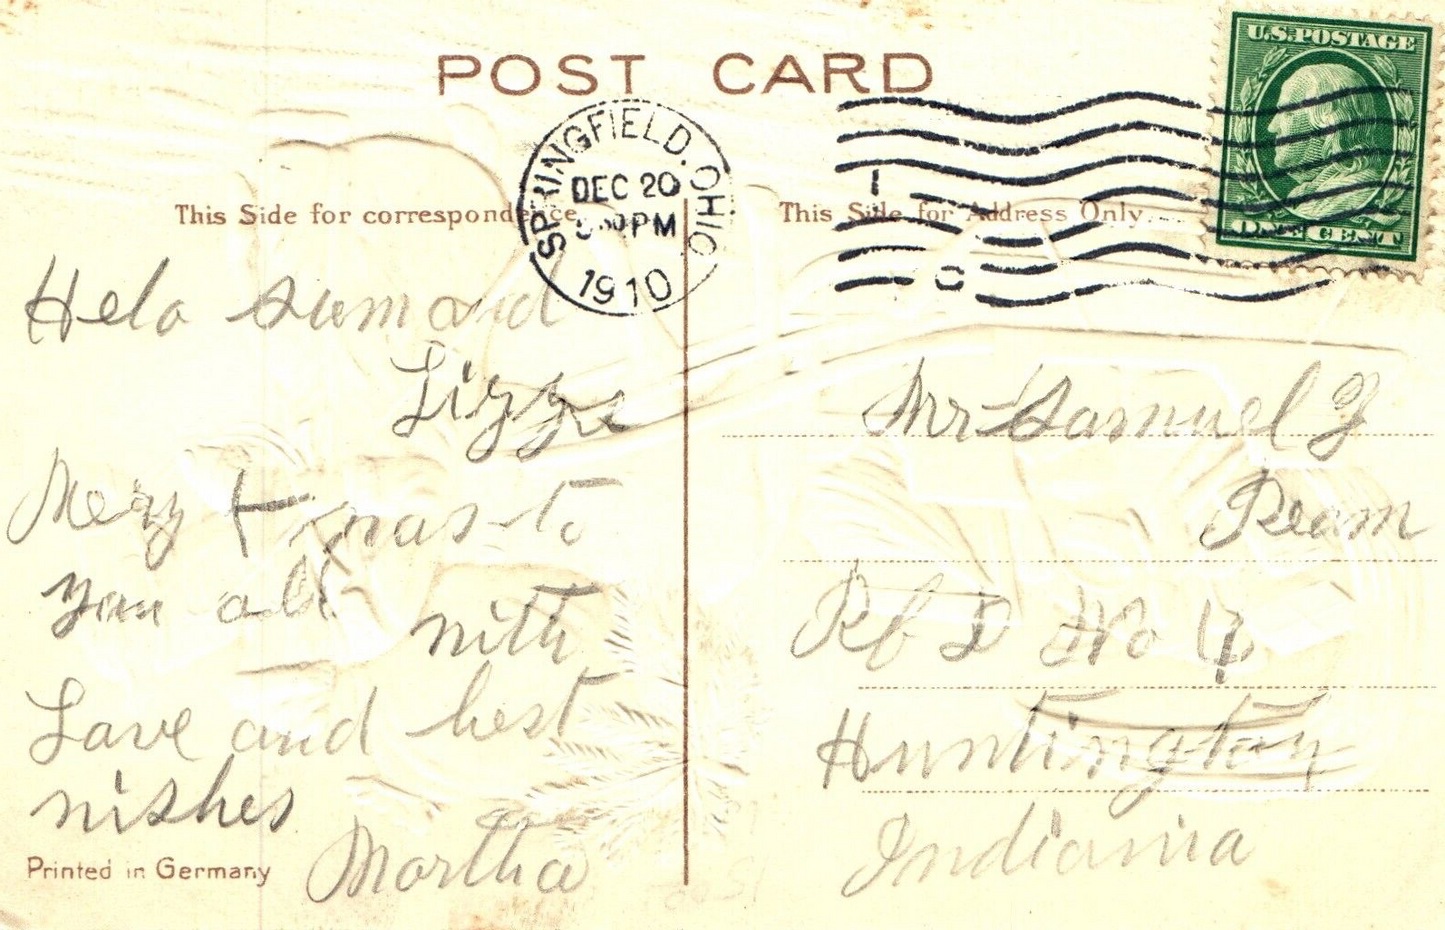 POST CARD
U.S. POSTAGE
SPRINGFIELD, OHIO
DEC 20
30 PM
1910
1
C
This Side for correspondence
This Side for Address Only
CENT
Helo Sam and
Lizze
Mery Xmas to
you all
with
Love and best
wishes
Martha
Printed in Germany
Mr Samuel
Ream
Rf D No
Huntington
Indiana